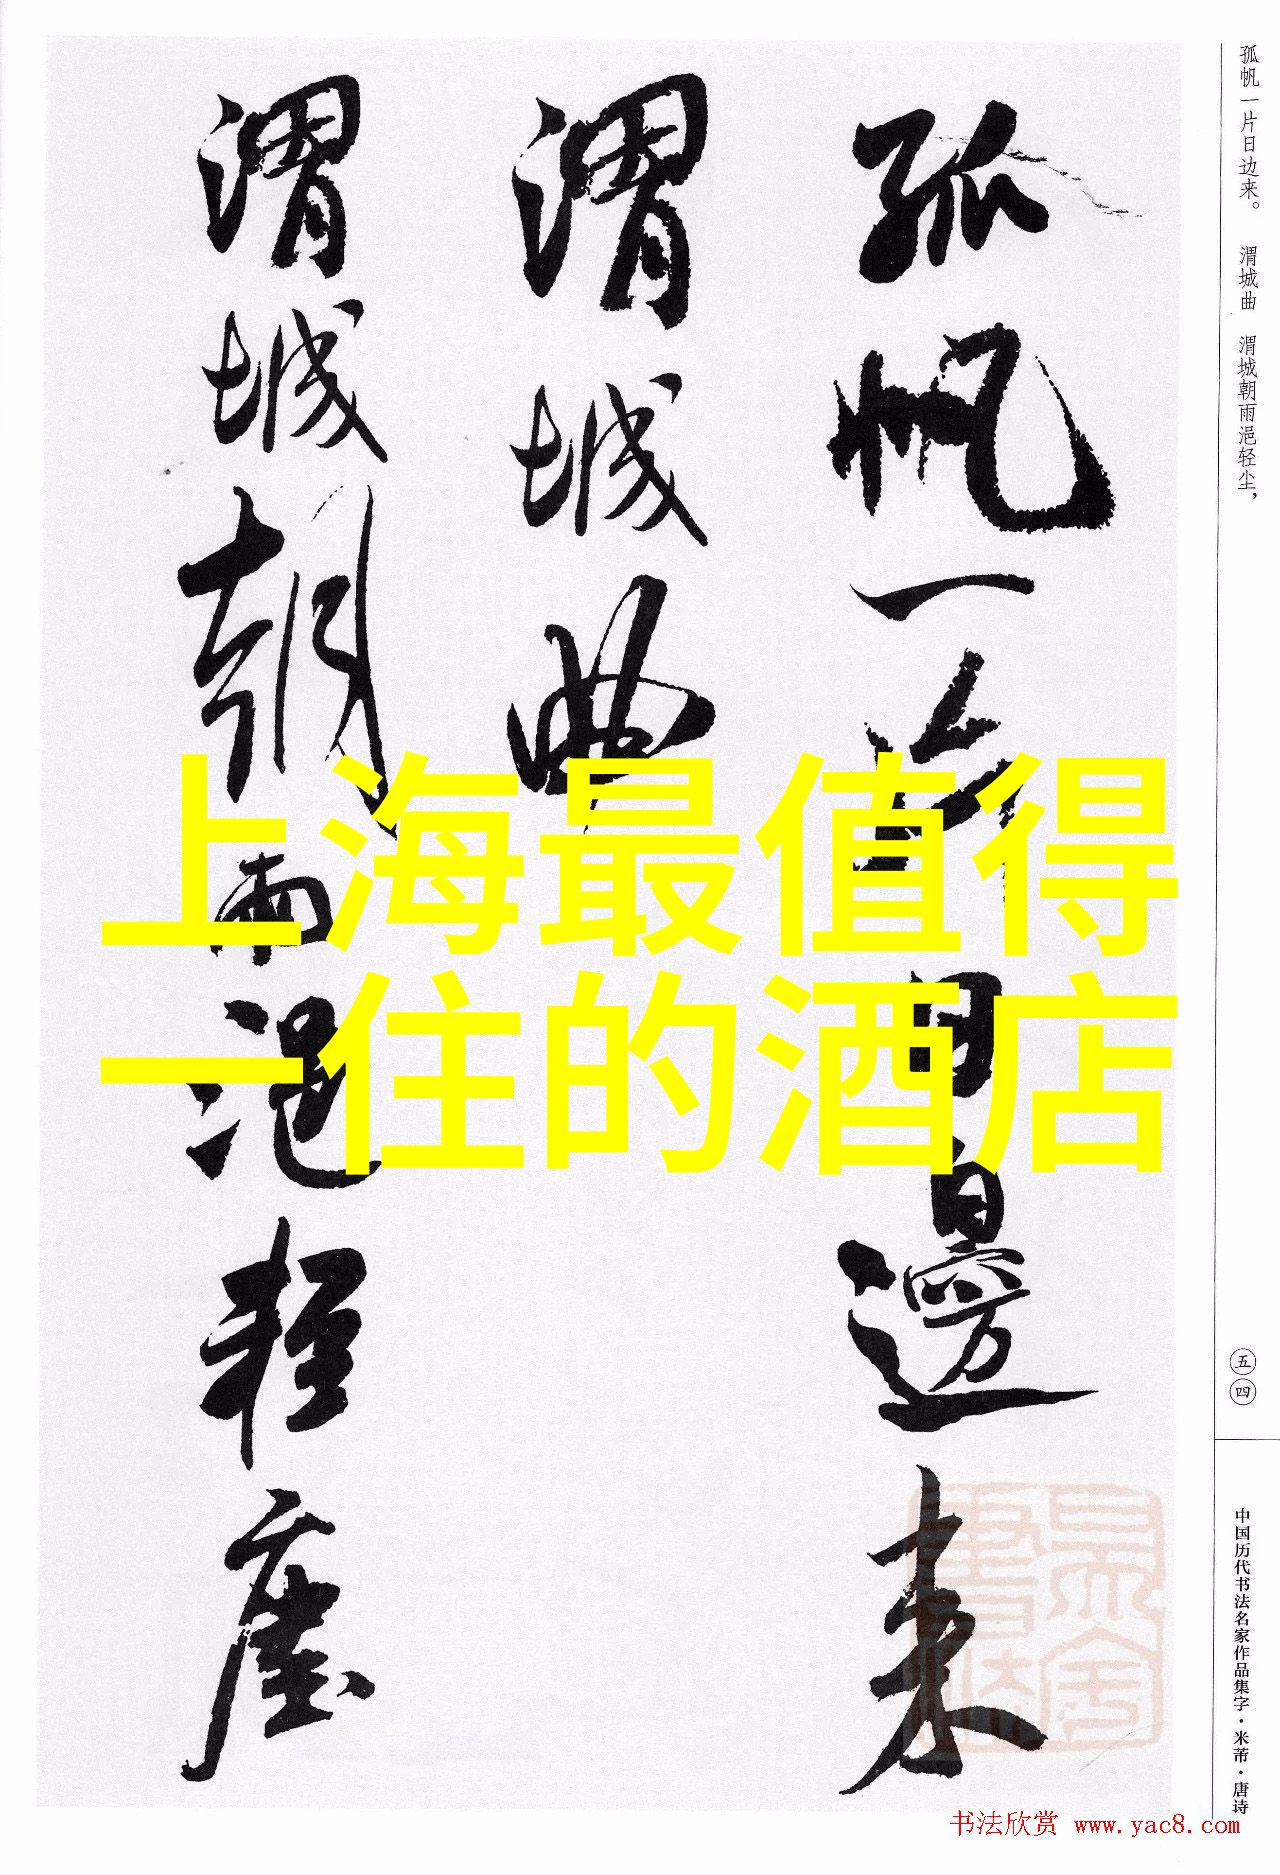 孤帆一片日边来。 渭城曲 渭城朝雨浥轻尘，
孤帆一片日邊来
渭城曲
渭城朝雨浥轻塵
上海最值得
一住的酒店
五四
中国历代书法名家作品集字·米芾·唐诗
书法欣赏 www.yac8.com